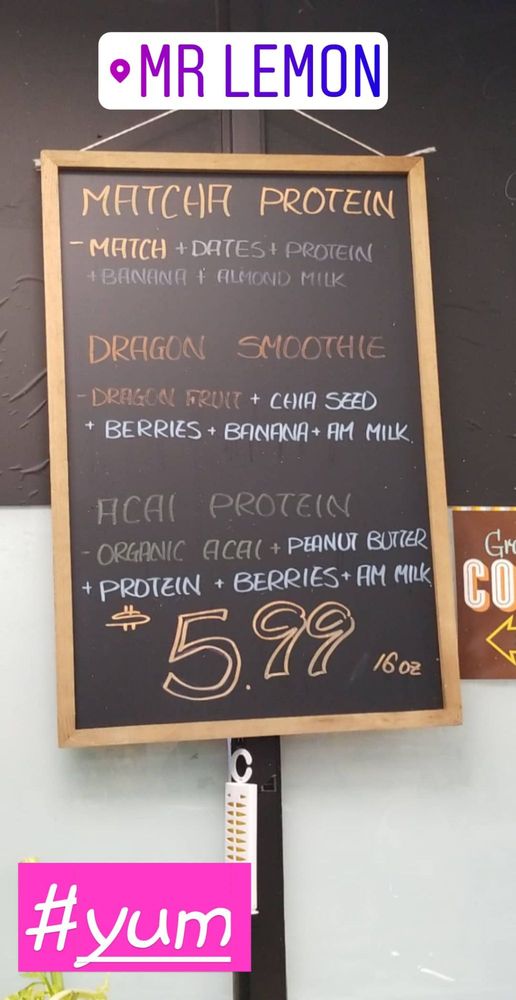 MR LEMON
MATCHA PROTEIN
- MATCH + DATES + PROTEIN
+ BANANA + ALMOND MILK
DRAGON SMOOTHIE
- DRAGON FRUIT + CHIA SEED
+ BERRIES + BANANA + AM MILK.
ACAI PROTEIN
- ORGANIC ACAI + PEANUT BUTTER
+ PROTEIN + BERRIES + AM MILK
$5.99 16 oz
#yum